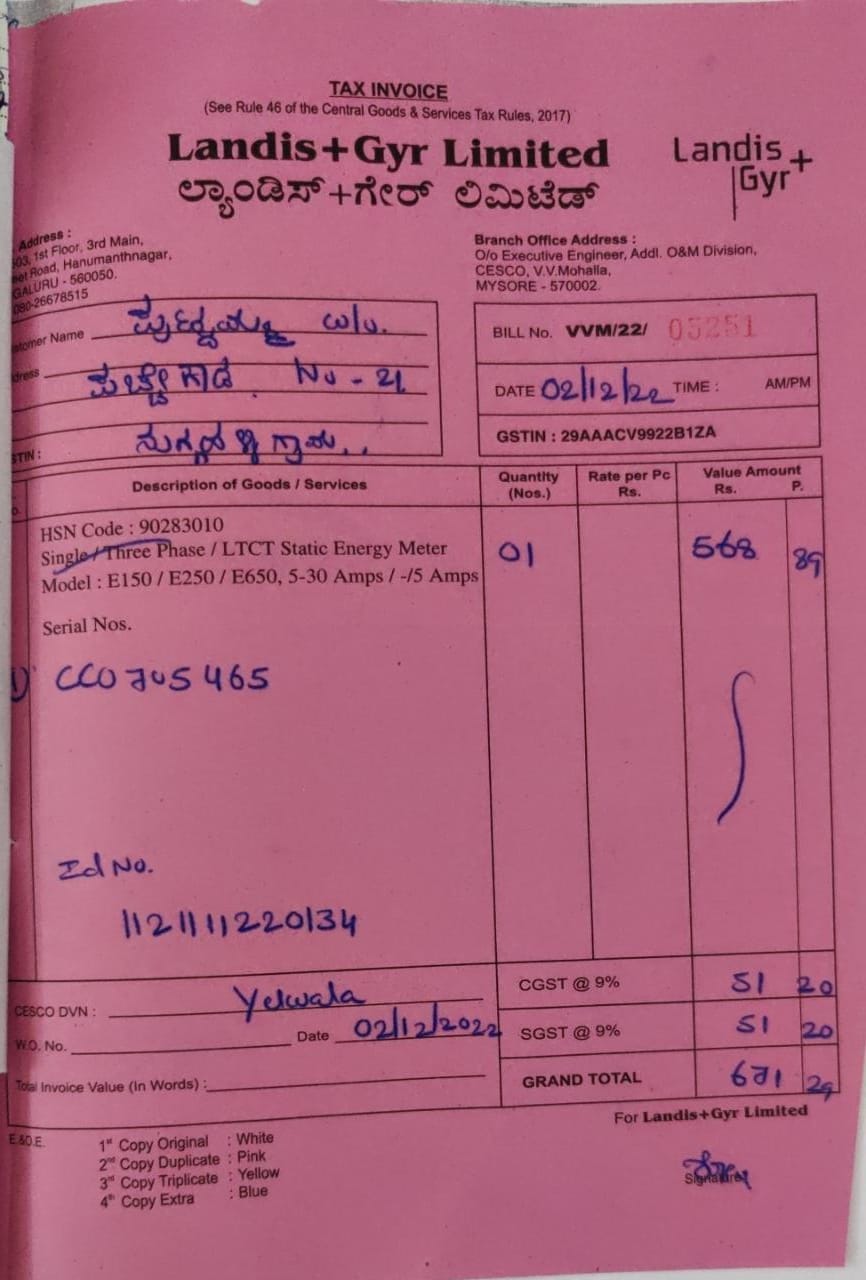 TAX INVOICE
(See Rule 46 of the Central Goods & Services Tax Rules, 2017)
Landis+Gyr Limited
ಲ್ಯಾಂಡಿಸ್+ಗೇರ್ ಲಿಮಿಟೆಡ್
Landis+
Gyr
Address :
1st Floor, 3rd Main,
Road, Hanumanthnagar,
GALURU - 560050.
080-26678515
Branch Office Address :
O/o Executive Engineer, Addl. O&M Division,
CESCO, V.V.Mohalla,
MYSORE - 570002.
stomer Name w/o.
dress No - 21
STIN :
BILL No. VVM/22/ 05251
DATE 02/12/22 TIME : AM/PM
GSTIN : 29AAACV9922B1ZA
Description of Goods / Services
Quantity (Nos.)
Rate per Pc Rs.
Value Amount Rs. P.
HSN Code : 90283010
Single / Three Phase / LTCT Static Energy Meter 01 568 89
Model : E150 / E250 / E650, 5-30 Amps / -/5 Amps
Serial Nos.
1) CC0705465
Id No.
1121111220134
CESCO DVN : Yelwala
W.O. No. Date 02/12/2022
Total Invoice Value (In Words) :
CGST @ 9% 51 20
SGST @ 9% 51 20
GRAND TOTAL 671 29
For Landis+Gyr Limited
E.&O.E.
1st Copy Original : White
2nd Copy Duplicate : Pink
3rd Copy Triplicate : Yellow
4th Copy Extra : Blue
Signature